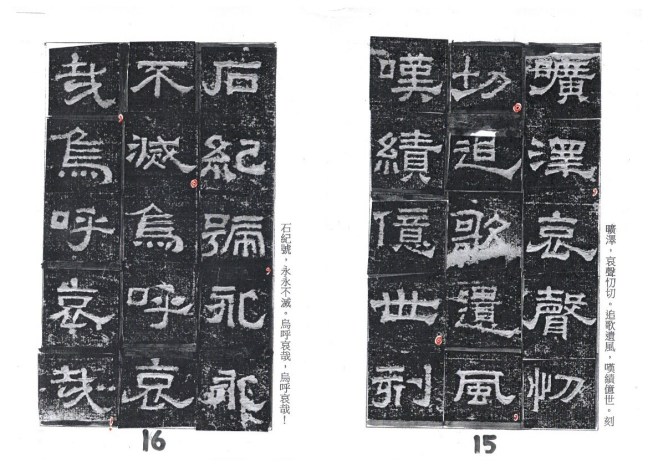 曠澤，哀聲忉切。追歌遺風，嘆績億世。刻
曠澤哀聲忉
切追歌遺風
嘆績億世刻
15
石紀號，永永不滅。烏呼哀哉，烏呼哀哉！
石紀號永永
不滅烏呼哀
哉烏呼哀哉
16